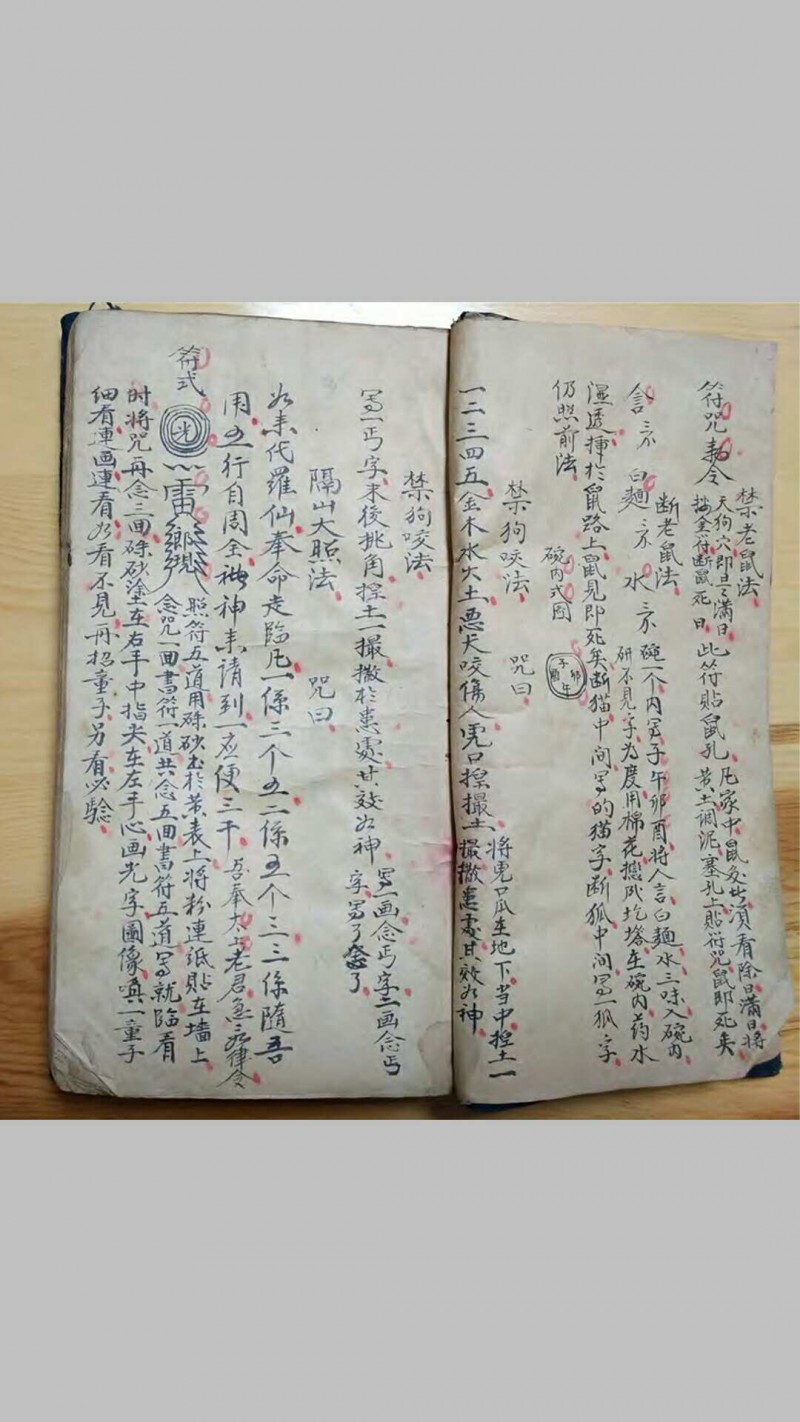 禁老鼠法
凡家中鼠多者須看除日滿日將
天狗穴即是滿日
符咒勅令
此符貼鼠孔
黃土调泥塞孔上貼符咒鼠即死矣
断老鼠法
碗一个内写子午卯酉將人言白麵水三味入碗内
言 白麵 水
研不見字为度用棉花 圪塔在碗内药水
湿透揷於鼠路上鼠見即死矣断猫中间写的猫字断狐中间写一狐字
仍照前法
碗内式图
子卯午酉
禁狗咬法
咒曰
將
口 在地下当中 土一
一二三四五金木水火土悪犬咬傷人 口 撮土
撮撒患處其效如神
禁狗咬法
写一丐字末後挑角 土一撮撒於患處其效如神
写一画念丐字二画念丐
字写了念了
隔山大照法
咒曰
如来代羅仙奉命走臨凡一條三个五二條五个三三條隨吾
用五行自周全 神来请到一应便三千
吾奉太上老君急急如律令
符式
光
雷
照符五道用硃砂書於黃表上將粉連紙貼在墙上
念咒一面書符一道共念五面書符五道写就臨看
时將咒再念三面硃砂塗在右手中指尖在左手心画光字圖像 一童子
细看連画連看如看不見再招童子另看必驗